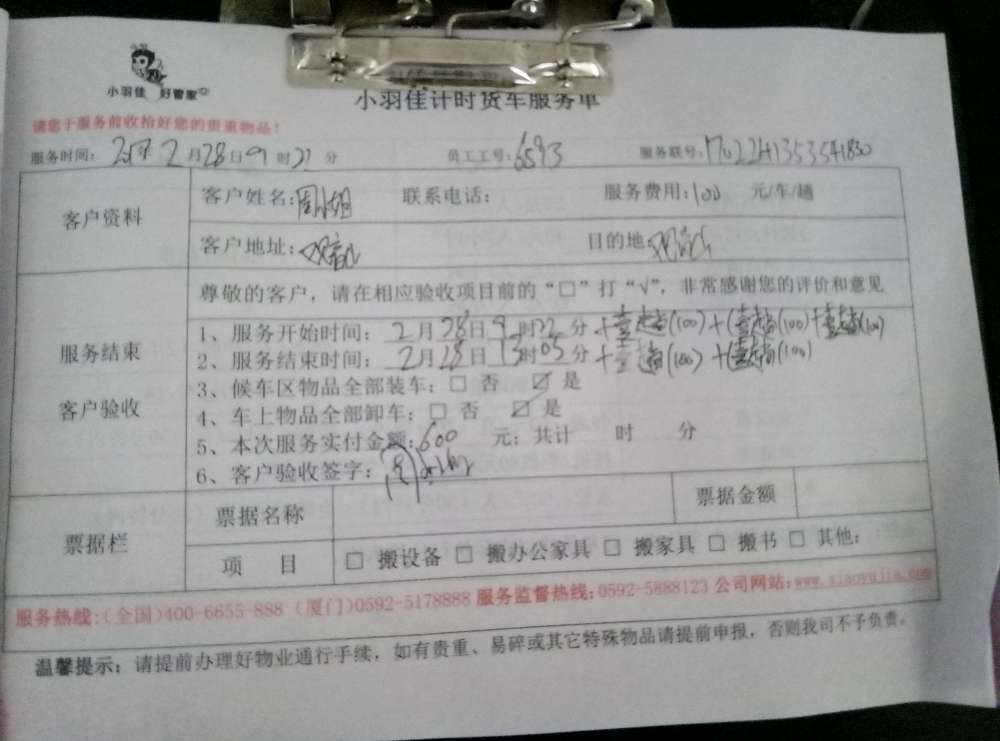 小羽佳 好管家
小羽佳计时货车服务单
请您于服务前收拾好您的贵重物品！
服务时间： 2017年 2月28日9时22分 员工工号：6593 服务联号：
客户资料
客户姓名： 联系电话： 服务费用：100 元/车/趟
客户地址： 目的地：
服务结束
客户验收
尊敬的客户，请在相应验收项目前的“□”打“√”，非常感谢您的评价和意见
1、服务开始时间：2月28日9时22分+壹趟(100)+(壹趟(100)+壹趟(100)
2、服务结束时间：2月28日13时05分+壹趟(100)+(壹趟(100)
3、候车区物品全部装车：□ 否 ☑ 是
4、车上物品全部卸车：□ 否 ☑ 是
5、本次服务实付金额：600 元；共计 时 分
6、客户验收签字：
票据栏
票据名称 票据金额
项 目 □ 搬设备 □ 搬办公家具 □ 搬家具 □ 搬书 □ 其他：
服务热线：(全国)400-6655-888 (厦门)0592-5178888 服务监督热线：0592-5888123 公司网站：www.xiaoyujia.com
温馨提示：请提前办理好物业通行手续，如有贵重、易碎或其它特殊物品请提前申报，否则我司不予负责。